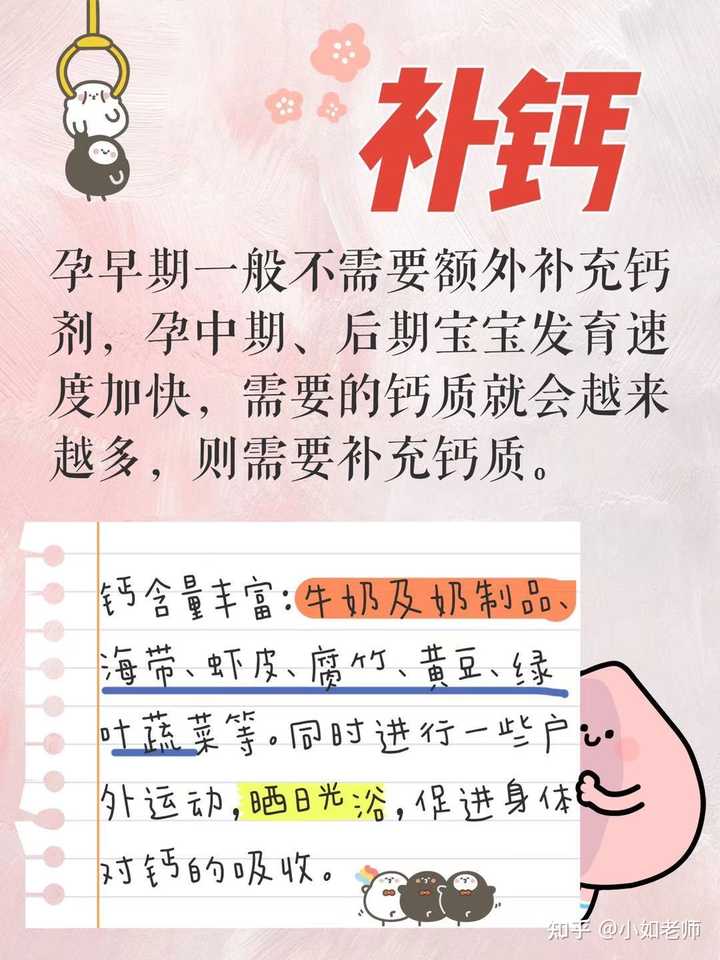 补钙
孕早期一般不需要额外补充钙
剂，孕中期、后期宝宝发育速
度加快，需要的钙质就会越来
越多，则需要补充钙质。
钙含量丰富:牛奶及奶制品、
海带、虾皮、腐竹、黄豆、绿
叶蔬菜等。同时进行一些户
外运动，晒日光浴，促进身体
对钙的吸收。
知乎 @小如老师